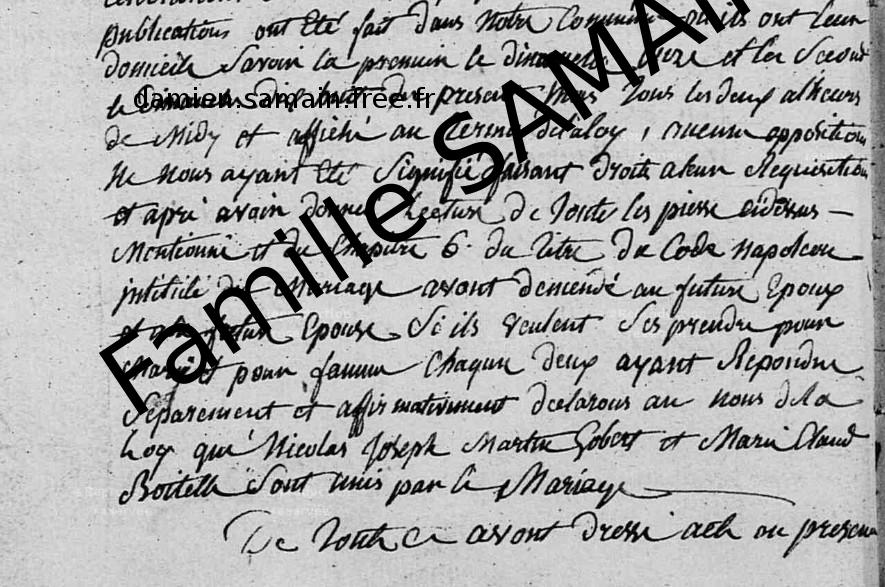 publications ont Eté fait dans Notre Commune ou ils ont leur
domicile Savoir la premier le dimanche onze et la Second
le dimanche dix huit du present Mois Tous les deux a lheurs
de Midy et affiché au terme de la loy, aucune opposition
Ne nous ayant Eté Signifié faisant droit a leur Requisition
et apré avoir donner Lecture de Toute les piesse cidessus —
Mentionné et du Chapitre 6. du titre du Code Napoleon
intitulé du Mariage avont demendé au future Epoux
et a la future Epouse Si ils veulent Se prendre pour
Mari et pour famme Chaqun deux ayant Repondu
Separement et affirmativement declarons au nous de la
Loy que Nicolas Joseph Martin Gobert et Marie Claud
Boitelle Sont unis par le Mariage
De Toute Ce avont dressé acte en presence
Famille SAMAIN
damien.samain.free.fr